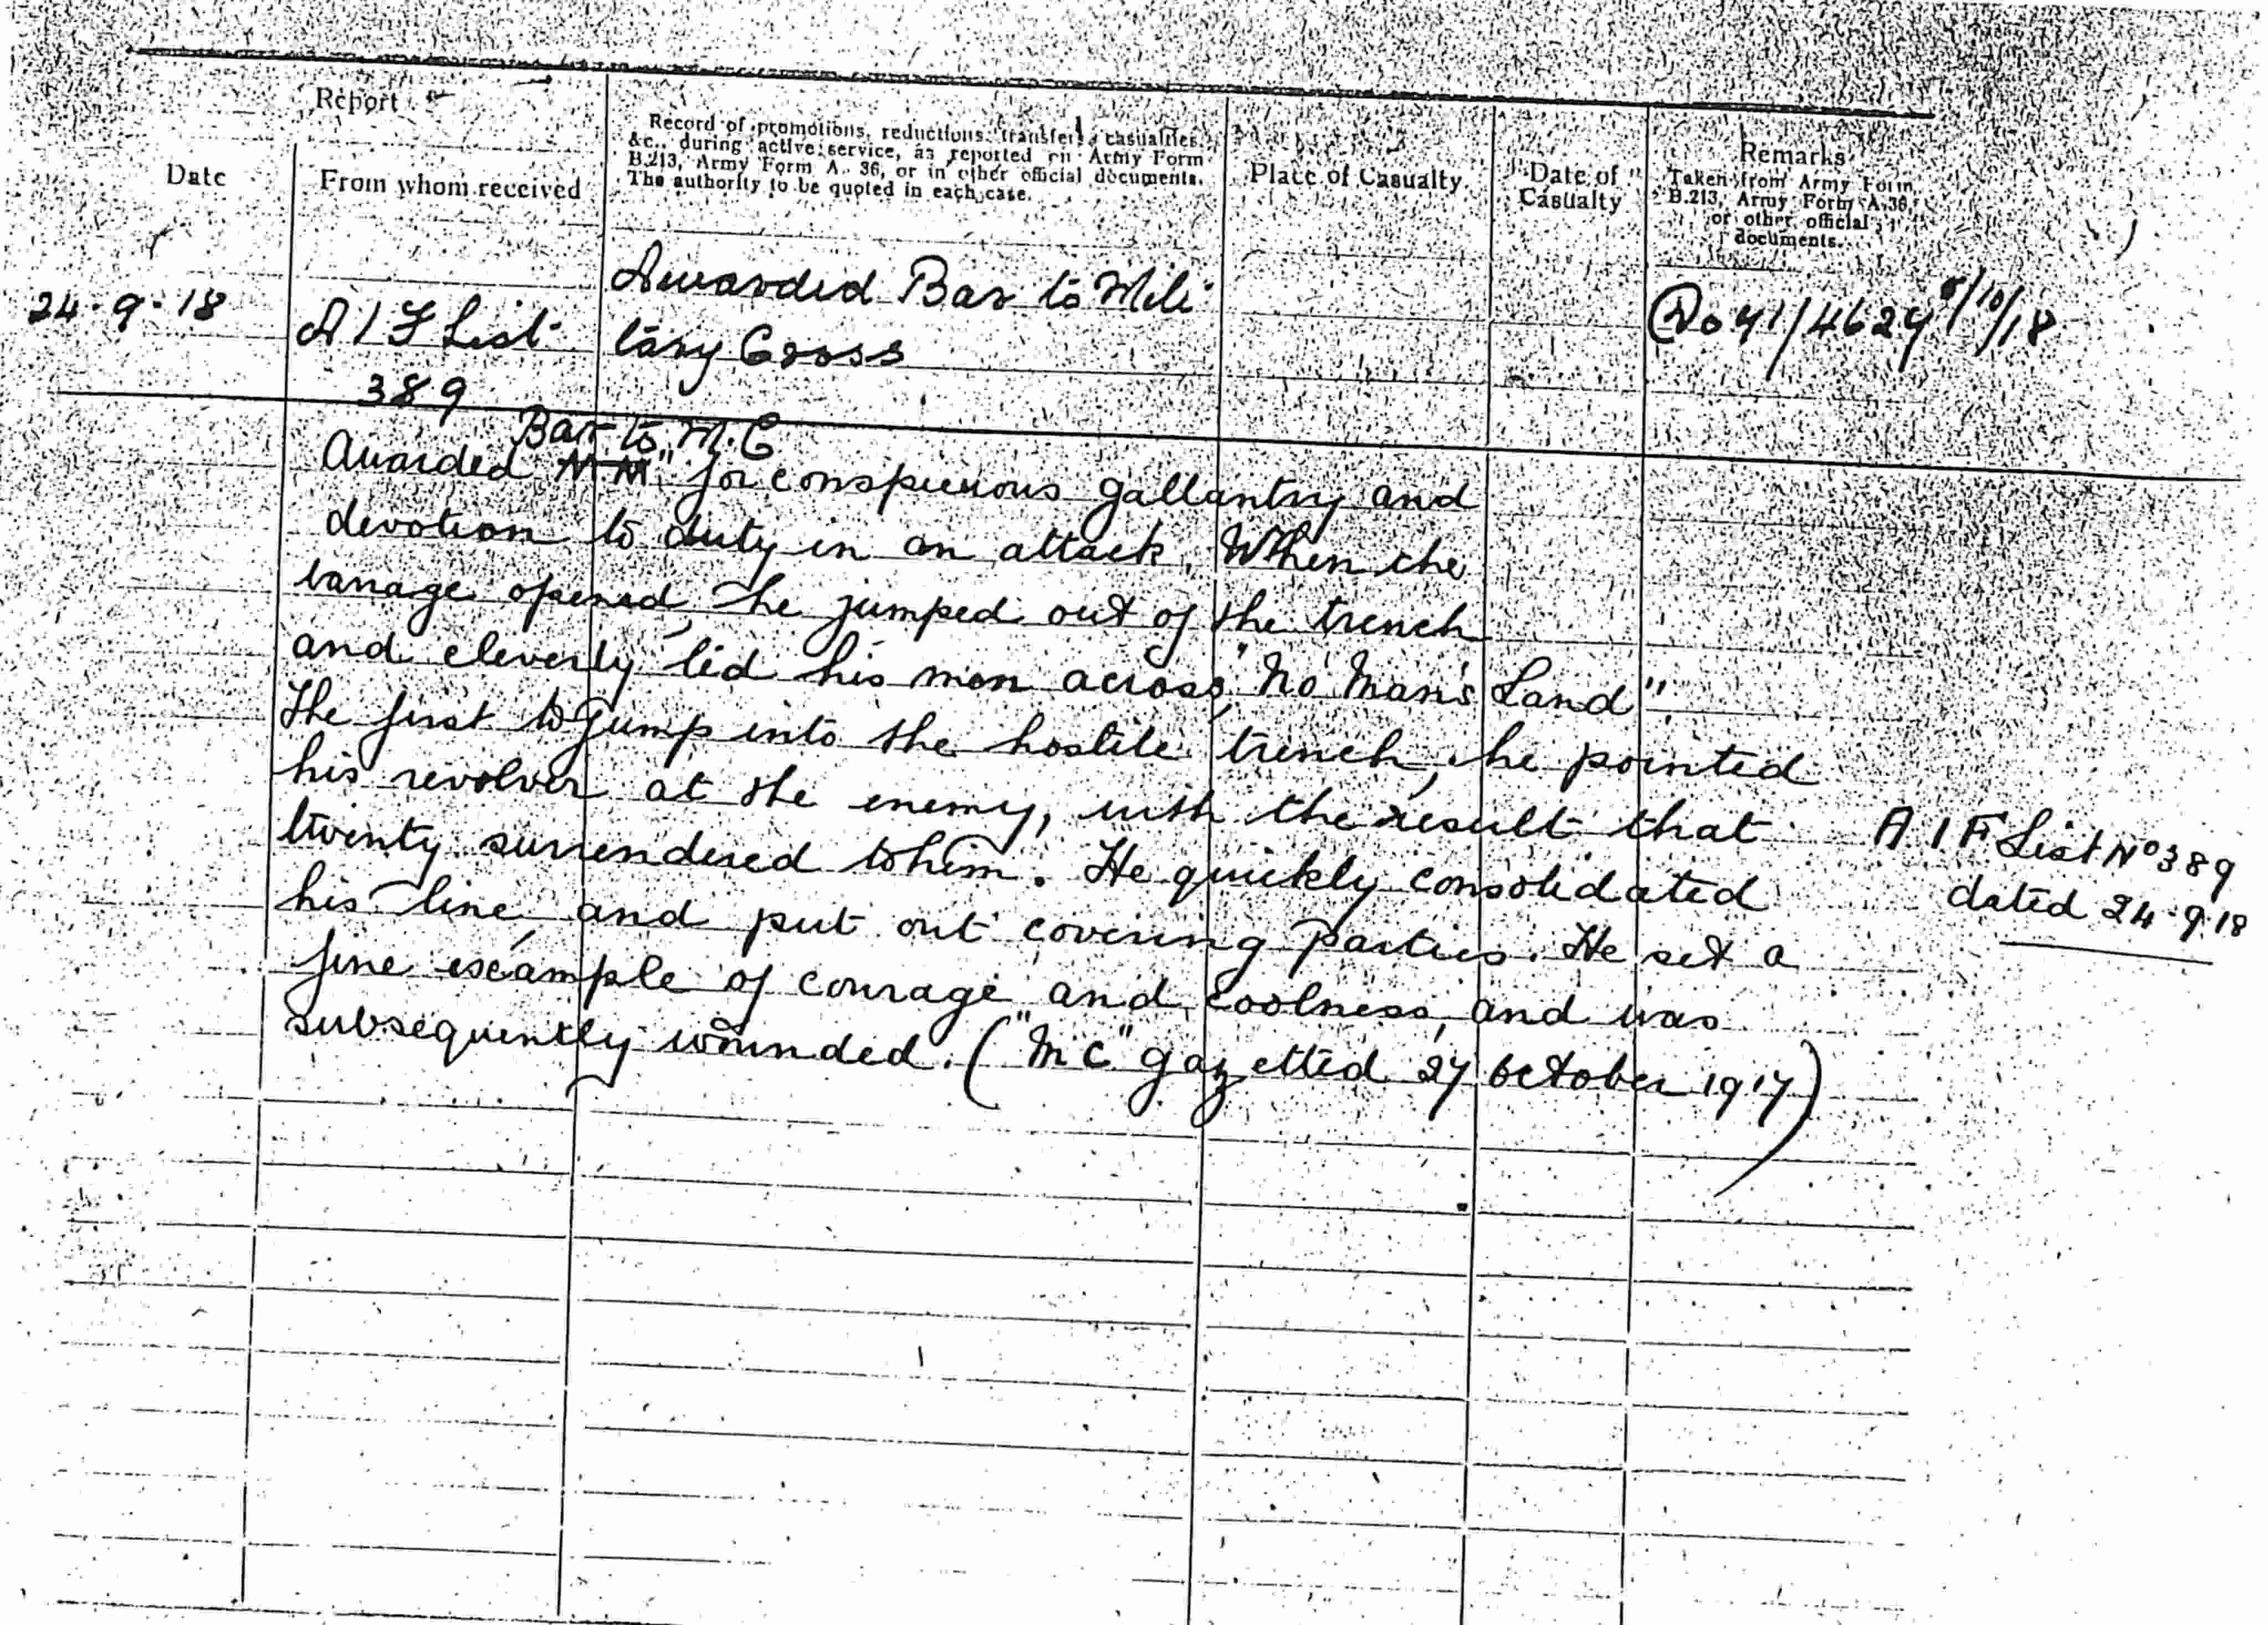 Report
Date
From whom received
Record of promotions, reductions, transfers, casualties,
&c., during active service, as reported on Army Form
B.213, Army Form A. 36, or in other official documents.
The authority to be quoted in each case.
Place of Casualty
Date of
Casualty
Remarks
Taken from Army Form
B.213, Army Form A.36,
or other official
documents.
24.9.18
A I F List
389
Awarded Bar to Mili
tary Cross
41/4627 8/10/18
Bar to M.C
Awarded "M M" for conspicuous gallantry and
devotion to duty in an attack. When the
barrage opened, he jumped out of the trench
and cleverly led his men across "No Man's Land".
The first to jump into the hostile trench, he pointed
his revolver at the enemy, with the result that
twenty surrendered to him. He quickly consolidated
his line, and put out covering parties. He set a
fine example of courage and coolness, and was
subsequently wounded. ("M C" gazetted 27 October 1917)
A I F List No 389
dated 24.9.18